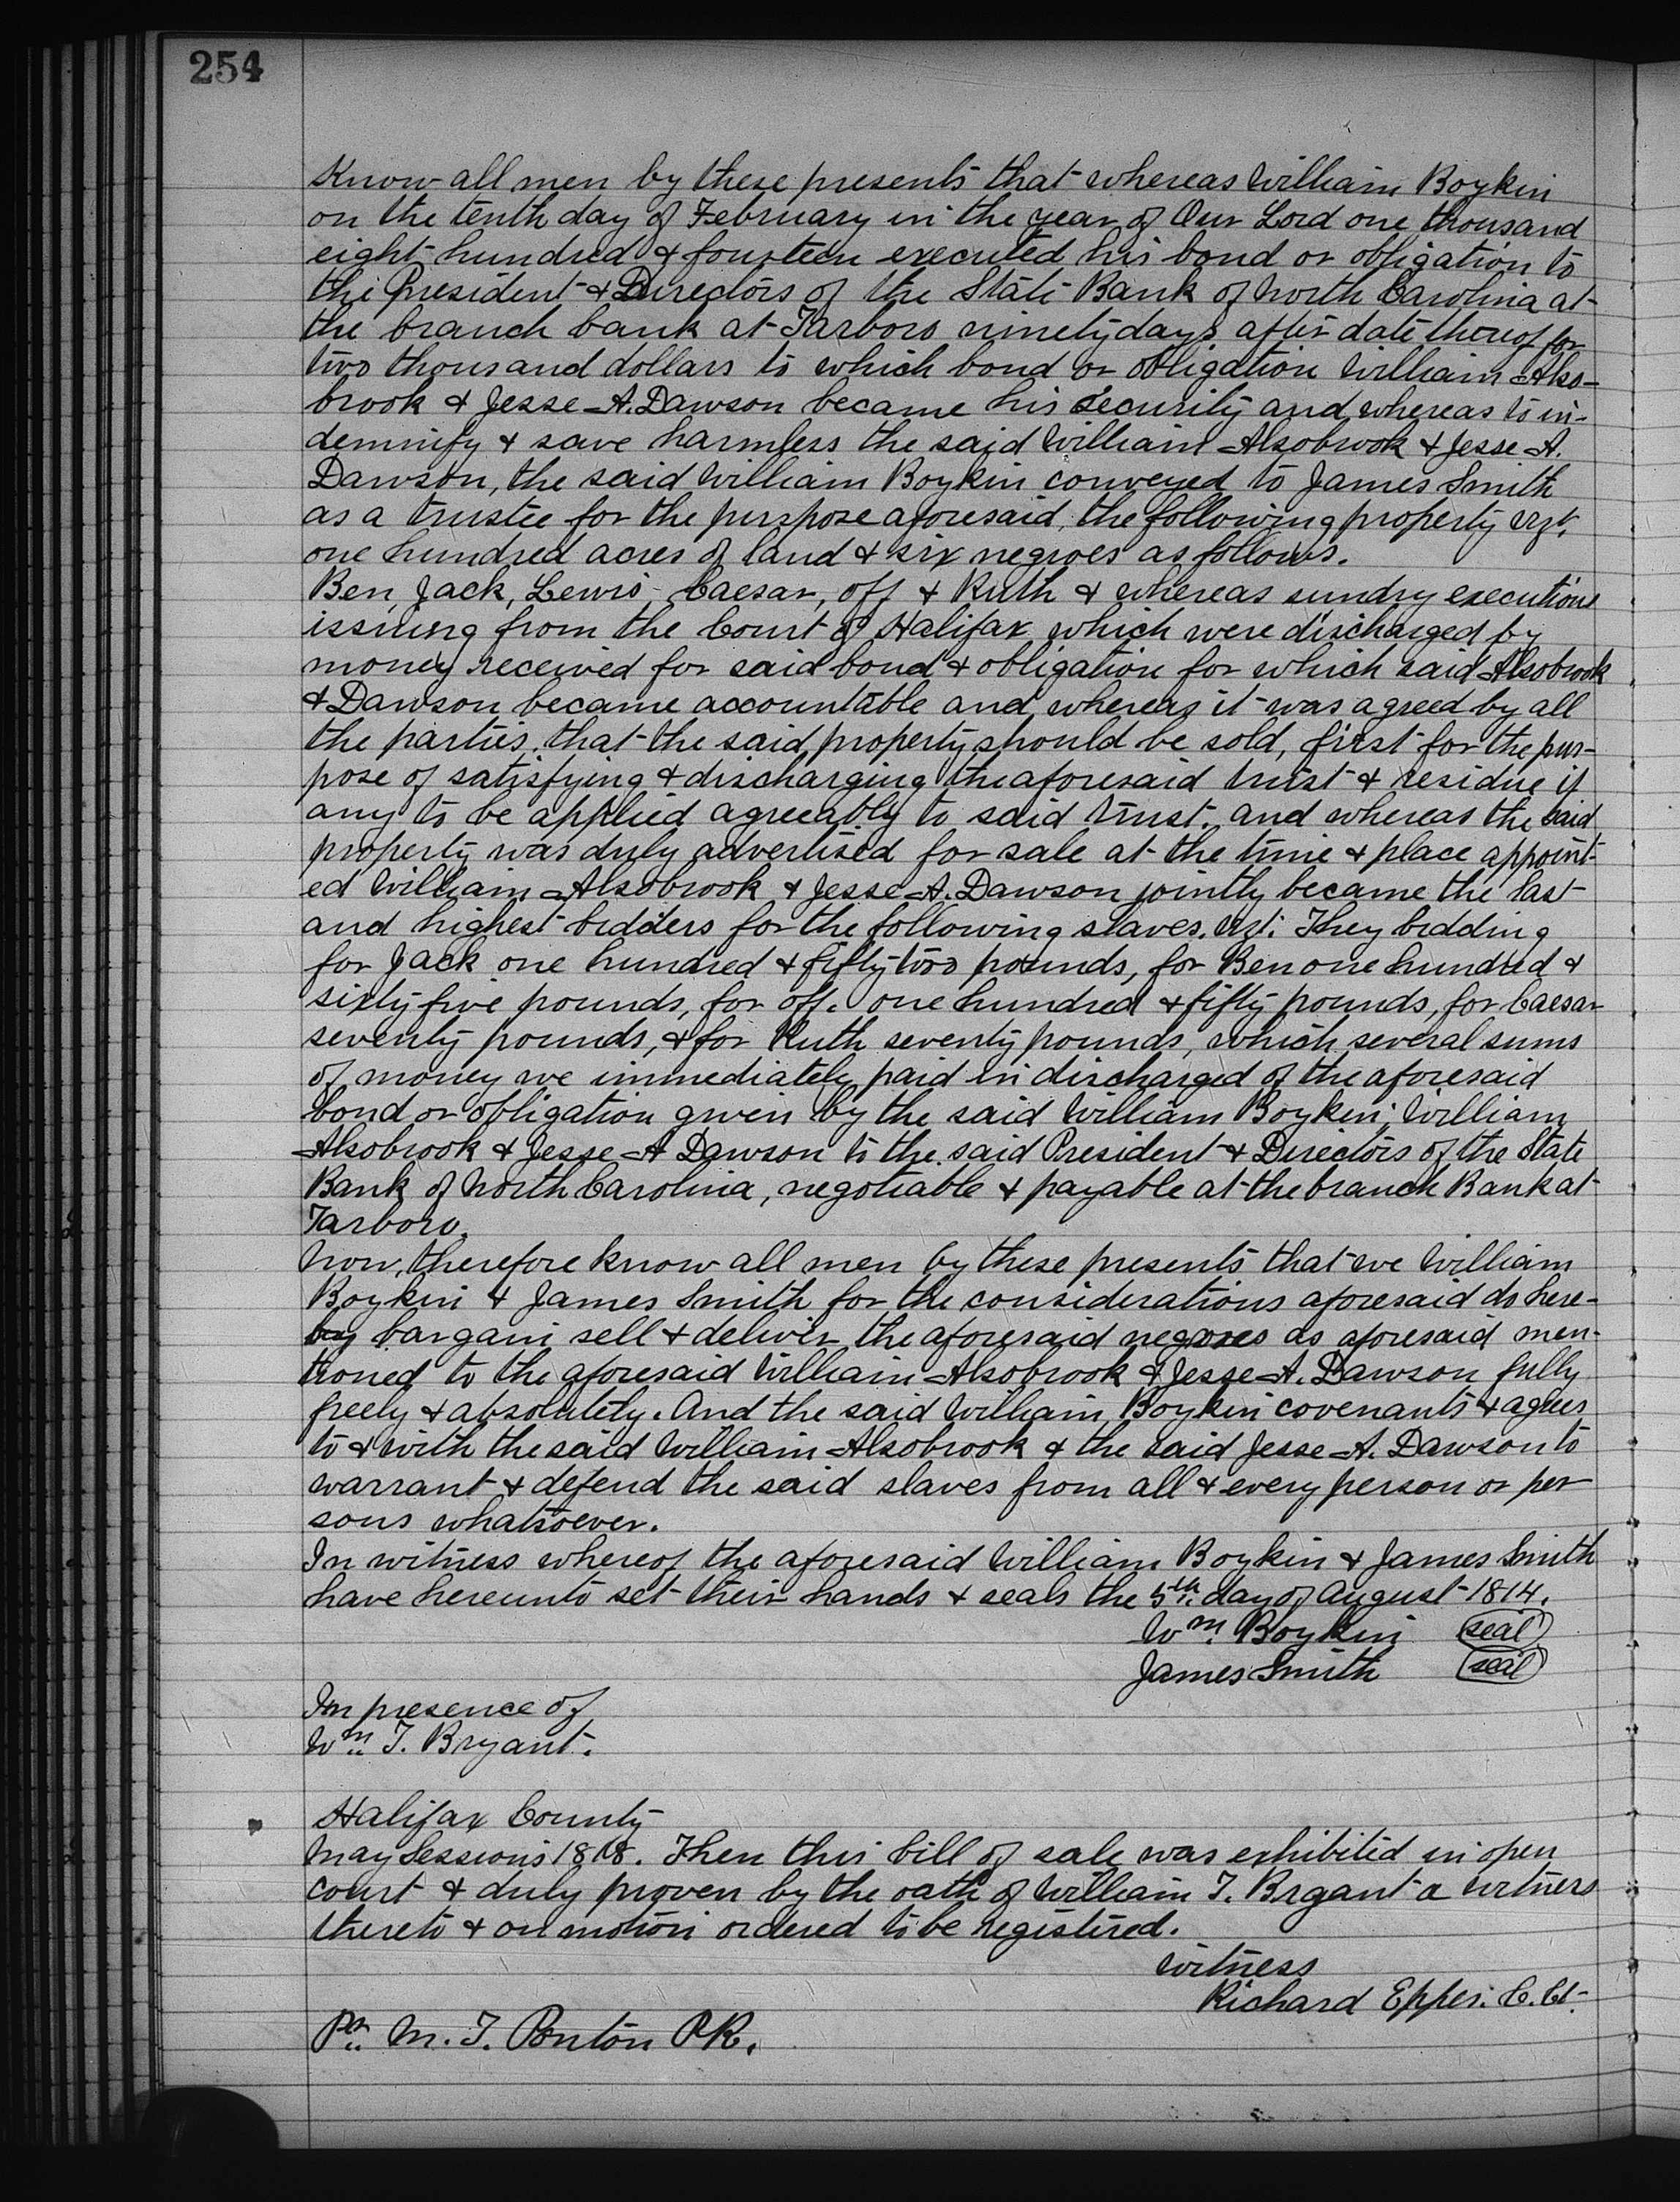 254
Know all men by these presents that whereas William Boykin
on the tenth day of February in the year of Our Lord one thousand
eight hundred & fourteen executed his bond or obligation to
the President & Directors of the State Bank of North Carolina at
the branch bank at Tarboro ninety days after date thereof for
two thousand dollars to which bond or obligation William Also-
brook & Jesse A. Dawson became his security and whereas to in-
demnify & save harmless the said William Alsobrook & Jesse A.
Dawson, the said William Boykin conveyed to James Smith
as a trustee for the purpose aforesaid, the following property vizt.
one hundred acres of land & six negroes as follows.
Ben, Jack, Lewis, Caesar, off & Ruth & whereas sundry executions
issuing from the Court of Halifax which were discharged by
money received for said bond & obligation for which said Alsobrook
& Dawson became accountable and whereas it was agreed by all
the parties, that the said property should be sold, first for the pur-
pose of satisfying & discharging the aforesaid trust & residue if
any to be applied agreeably to said trust. and whereas the said
property was duly advertised for sale at the time & place appoint-
ed William Alsobrook & Jesse A. Dawson jointly became the last
and highest bidders for the following slaves. vizt: They bidding
for Jack one hundred & fifty two pounds, for Ben one hundred &
sixty five pounds, for off. one hundred & fifty pounds, for Caesar
seventy pounds, & for Ruth seventy pounds, which several sums
of money we immediately paid in discharged of the aforesaid
bond or obligation given by the said William Boykin, William
Alsobrook & Jesse A Dawson to the said President & Directors of the State
Bank of North Carolina, negotiable & payable at the branch Bank at
Tarboro.
Now, therefore know all men by these presents that we William
Boykin & James Smith for the considerations aforesaid do here-
by bargain sell & deliver the aforesaid negroes as aforesaid men-
tioned to the aforesaid William Alsobrook & Jesse A. Dawson fully
freely & absolutely. And the said William Boykin covenants & agrees
to & with the said William Alsobrook & the said Jesse A. Dawson to
warrant & defend the said slaves from all & every person or per
sons whatsoever.
In witness whereof the aforesaid William Boykin & James Smith
have hereunto set their hands & seals the 5th day of August 1814.
Wm. Boykin (seal)
James Smith (seal)
In presence of
Wm. T. Bryant.
Halifax County
May Sessions 1818. Then this bill of sale was exhibited in open
court & duly proven by the oath of William T. Bryant a witness
thereto & on motion ordered to be registered.
Witness
Richard Eppes. C. Ct.
Pr. M. T. Ponton P.R.